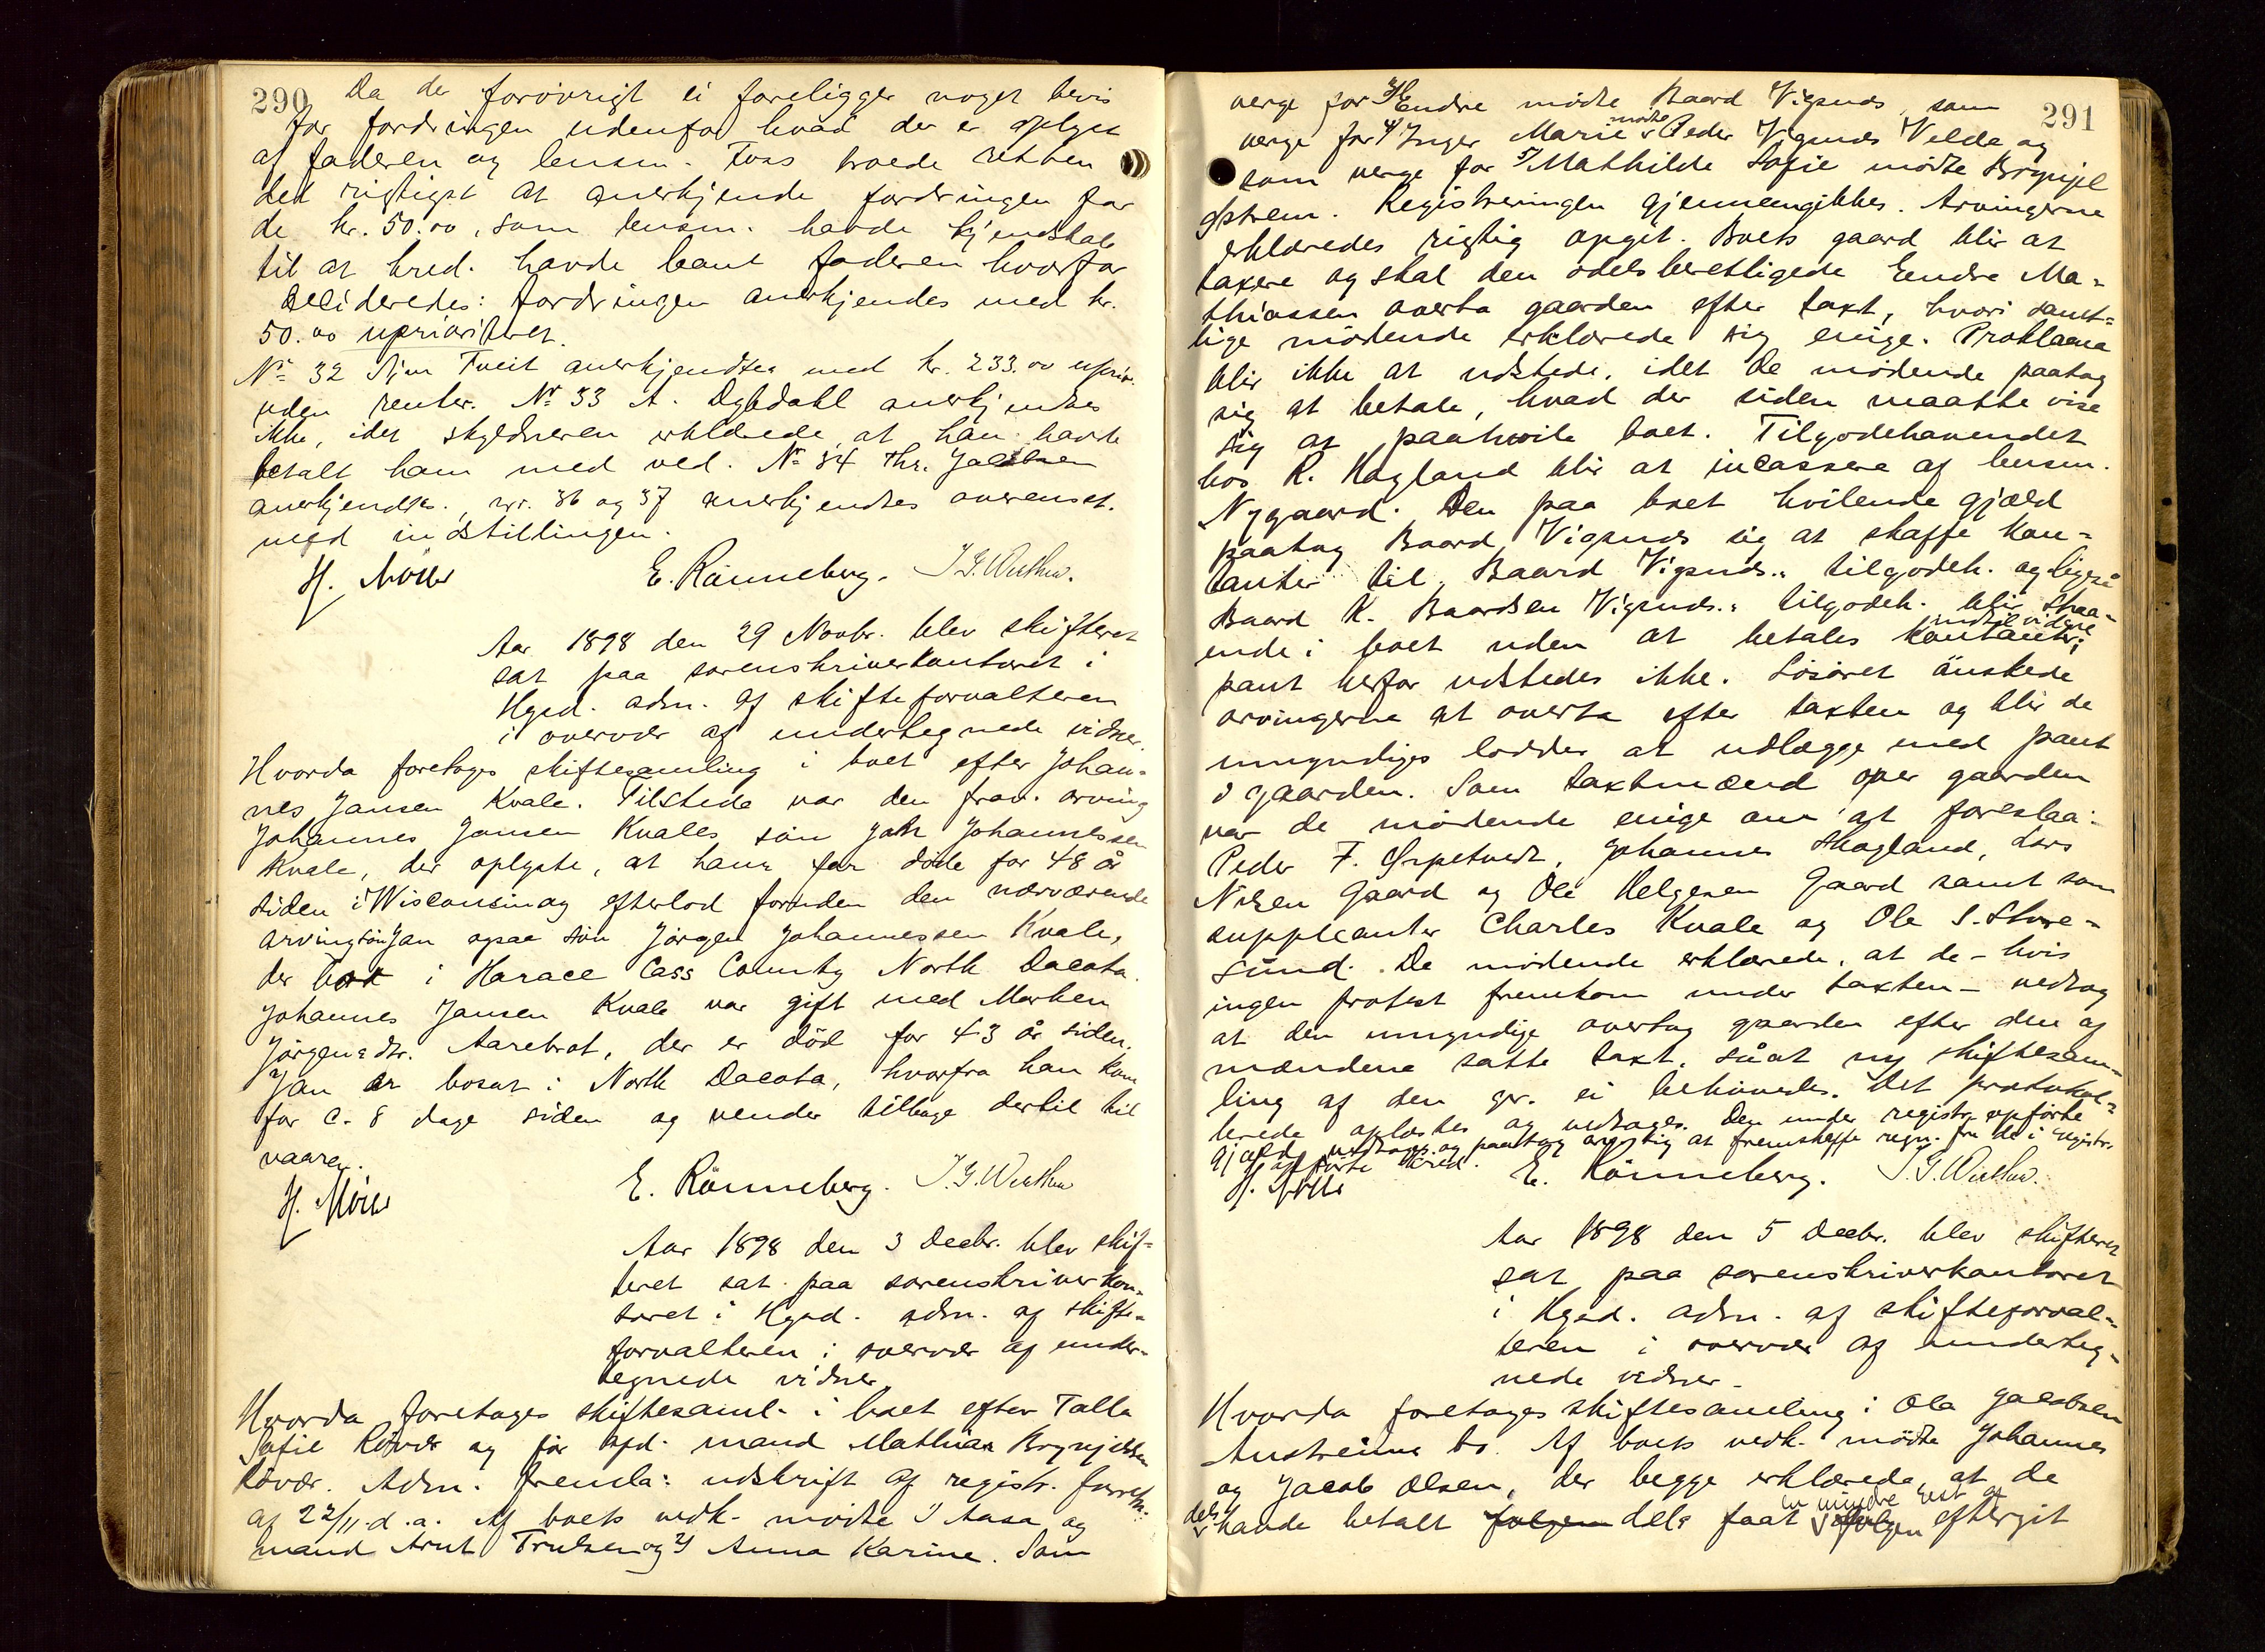 290
Da de forøvrigt ei foreligger noget bevis
for fordringen udenfor hvad der er oplyst
af faderen og lensm. Foss troede retten
det rigtigst at anerkjende fordringen for
de kr. 50.00, som lensm. havde kjendskab
til at kred. havde laant faderen hvorfor
decideredes: fordringen anerkjendes med kr.
50.00 uprioriteret.
No 32 Sjur Tveit anerkjendtes med kr. 233.00 uprior.
uden renter. No 33 A. Dybdahl anerkjendtes
ikke, idet skyldneren erklærede, at han havde
betalt ham med ved. No 34 Thr. Jacobsen
anerkjendtes., nr. 36 og 37 anerkjendtes overenst.
med indstillingen.
H. Møller E. Rönneberg. J. G. Wiethw.
Aar 1898 den 29 Novbr. blev skifteret
sat paa sorenskriverkontoret i
Hgsd. adm. af skifteforvalteren
i overvær af undertegnede vidner.
Hvorda foretoges skiftesamling i boet efter Johan-
nes Jansen Kvale. Tilstede var den frav. arving
Johannes Jansen Kvales søn Jan Johannessen
Kvale, der oplyste, at hans far døde for 48 år
siden i Wisconsin og efterlod foruden den nærværende
arving søn Jan ogsaa søn Jørgen Johannessen Kvale,
der bor i Horace Cass County North Dacota.
Johannes Jansen Kvale var gift med Marken
Jørgensdtr. Aarebrot, der er död for 43 år siden.
Jan er bosat i North Dacota, hvorfra han kom
for c. 8 dage siden og vender tilbage dertil til
vaaren.
H. Møller E. Rönneberg. J. G. Wiethw
Aar 1898 den 3 Decbr. blev skif-
teret sat paa sorenskriverkon-
toret i Hgsd. adm. af skifte-
forvalteren i overvær af under-
tegnede vidner
Hvorda foretoges skiftesaml. i boet efter Talla
Sofie Røvær og før afd. mand Mathias Brynjelsen
Røvær. Adm. fremla: udskrift af registr. forretn.
af 22/11 d.a. Af boets vedk. mødte 1) Aasa og
mand Arnt Trulsen og 2) Anna Karine. Som
291
verge for 3) Endre mødte Baard Vignæs, som
verge for 4) Inger Marie mødte Peder Vignæs Velde og
som verge for 5) Mathilde Sofie mødte Brynjel
Østrem. Registreringen gjennemgikkes. Arvingerne
erklæredes rigtig opgit. Boets gaard blir at
taxere og skal den odelsberettigede Endre Ma-
thiassen overta gaarden efter taxt, hvori samt-
lige mødende erklærede sig enige. Proklama
blir ikke at udstede, idet de mødende paatog
sig at betale, hvad der siden maatte vise
sig at paahvile boet. Tilgodehavendet
hos R. Hagland blir at incassere af lensm.
Nygaard. Den paa boet hvilende gjæld
paatog Baard Vignæs sig at skaffe kon-
tanter til. Baard Vignæs.. tilgodeh. og ligeså
Baard K. Baardsen Vignæs.. tilgodeh. blir staa-
ende i boet uden at betales indtil videre kontanter;
pant herfor udstedes ikke. Løsøret ønskede
arvingerne at overta efter taxten og blir de
umyndiges lodder at udlægge med pant
i gaarden. Som taxtmænd over gaarden
var de mødende enige om at foreslaa:
Peder F. Erpetvedt, Johannes Hagland, Lars
Nilsen Gaard og Ole Helgesen Gaard samt som
suppleanter Charles Kvale og Ole S. Store-
sund. De mødende erklærede, at de - hvis
ingen protest fremkom under taxten - vedtog
at den umyndige overtog gaarden efter den af
mændene satte taxt, såat ny skiftesam-
ling af den gr. ei behøvedes. Det protokol-
lerede oplæstes og vedtoges. Den under registr. opførte
gjæld vedtoges og paatog arv. sig at fremskaffe regn. fra de i registr.
opførte kred.
H. Møller E. Rönneberg. J. G. Wiethw.
Aar 1898 den 5 Decbr. blev skifteret
sat paa sorenskriverkontoret
i Hgsd. adm. af skifteforval-
teren i overvær af underteg-
nede vidner.
Hvorda foretoges skiftesamling i Ola Jacobsen
Austreims bo. Af boets vedk. mødte Johannes
og Jacob Olsen, der begge erklærede, at de
dels havde betalt følgen dels faat en mindre rest af følgen eftergit